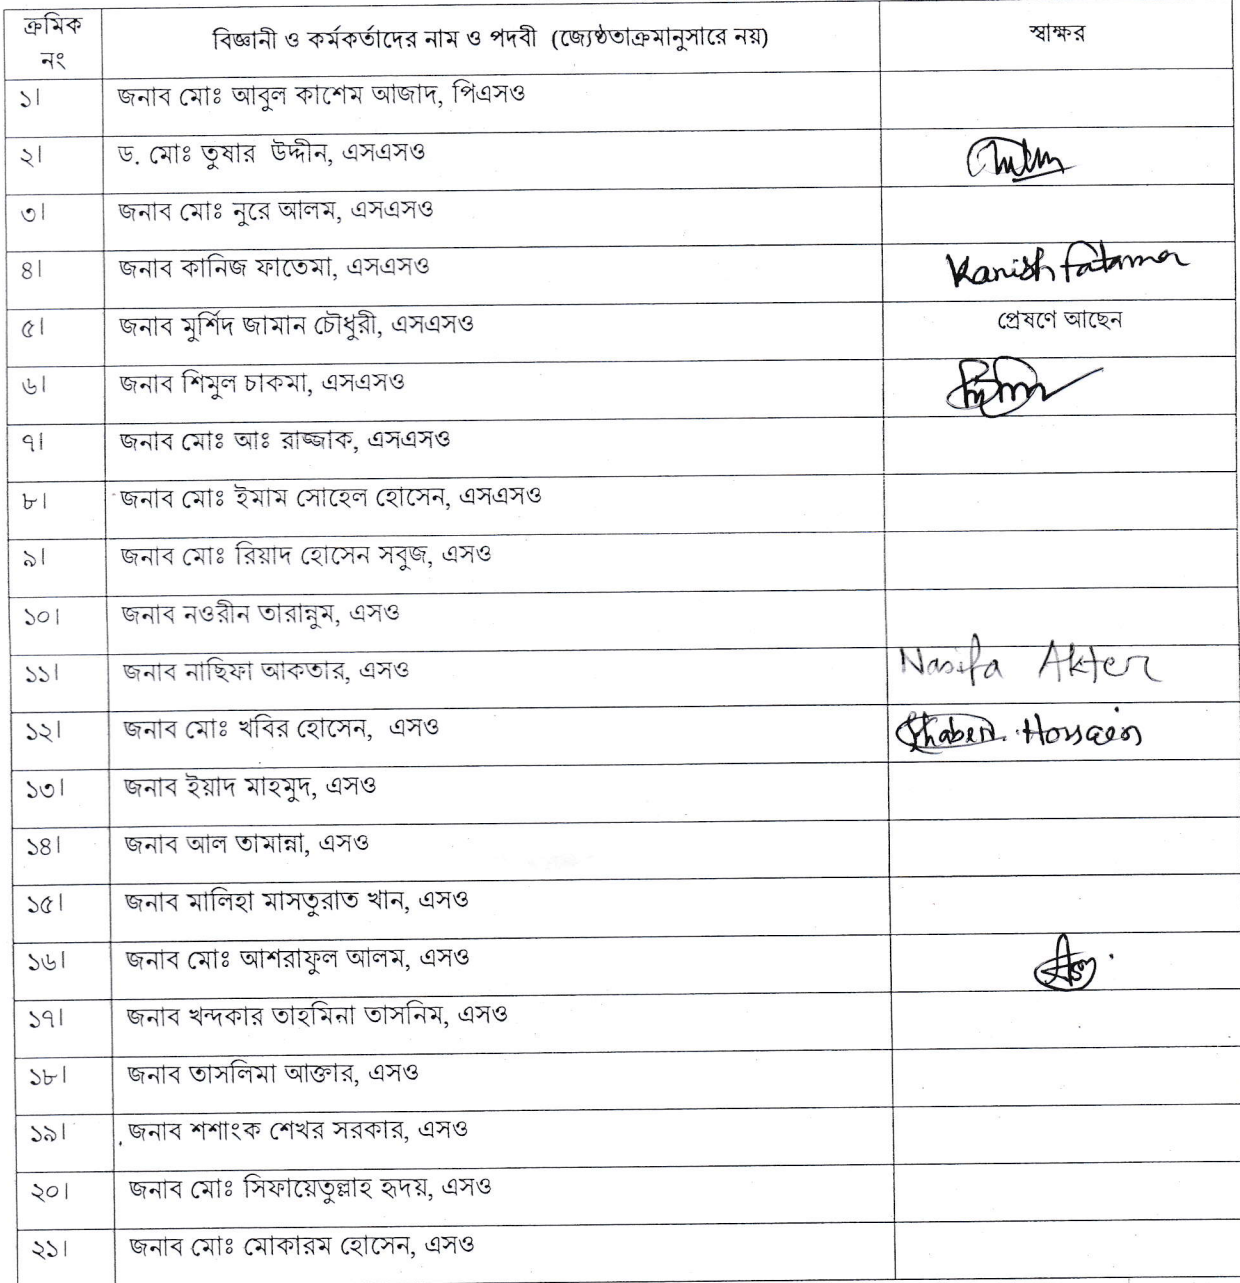 ক্রমিক নং
বিজ্ঞানী ও কর্মকর্তাদের নাম ও পদবী (জ্যেষ্ঠতাক্রমানুসারে নয়)
স্বাক্ষর
১। জনাব মোঃ আবুল কাশেম আজাদ, পিএসও
২। ড. মোঃ তুষার উদ্দীন, এসএসও
৩। জনাব মোঃ নুরে আলম, এসএসও
৪। জনাব কানিজ ফাতেমা, এসএসও Kanish fatama
৫। জনাব মুর্শিদ জামান চৌধুরী, এসএসও প্রেষণে আছেন
৬। জনাব শিমুল চাকমা, এসএসও
৭। জনাব মোঃ আঃ রাজ্জাক, এসএসও
৮। জনাব মোঃ ইমাম সোহেল হোসেন, এসএসও
৯। জনাব মোঃ রিয়াদ হোসেন সবুজ, এসও
১০। জনাব নওরীন তারান্নুম, এসও
১১। জনাব নাছিফা আকতার, এসও Nasifa Akter
১২। জনাব মোঃ খবির হোসেন, এসও Hossain
১৩। জনাব ইয়াদ মাহমুদ, এসও
১৪। জনাব আল তামান্না, এসও
১৫। জনাব মালিহা মাসতুরাত খান, এসও
১৬। জনাব মোঃ আশরাফুল আলম, এসও
১৭। জনাব খন্দকার তাহমিনা তাসনিম, এসও
১৮। জনাব তাসলিমা আক্তার, এসও
১৯। জনাব শশাংক শেখর সরকার, এসও
২০। জনাব মোঃ সিফায়েতুল্লাহ হৃদয়, এসও
২১। জনাব মোঃ মোকারম হোসেন, এসও